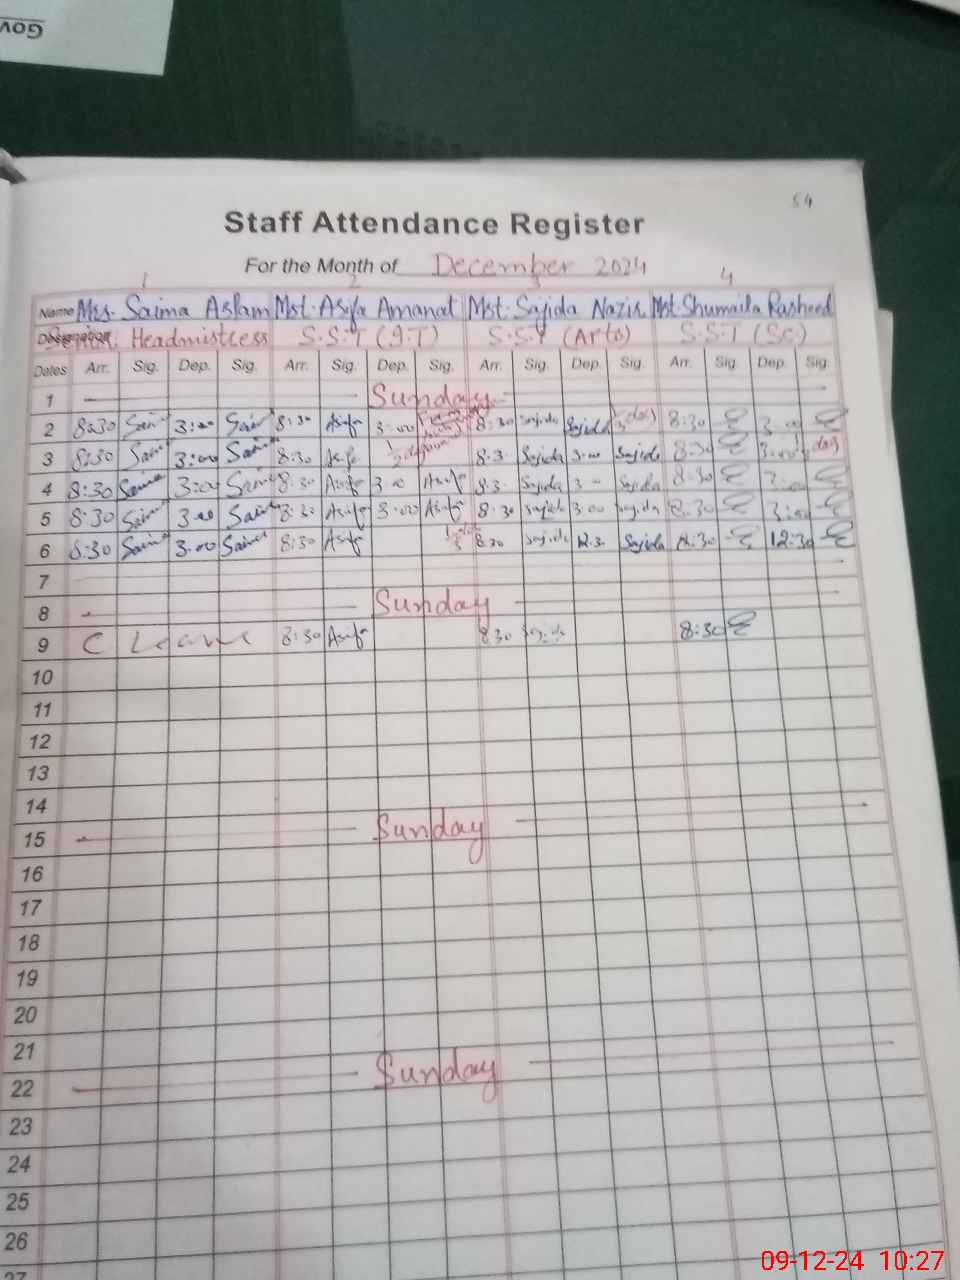 Gov
54
Staff Attendance Register
For the Month of December 2024
1 2 3 4
Name Mrs. Saima Aslam Mst. Asifa Amanat Mst. Sajida Nazir Mst. Shumaila Rasheed
Headmistress S.S.T (I.T) S.S.T (Arts) S.S.T (Sc)
Dates Arr. Sig. Dep. Sig. Arr. Sig. Dep. Sig. Arr. Sig. Dep. Sig. Arr. Sig. Dep. Sig.
1 Sunday
2 8:30 Saima 3:00 Saima 8:30 Asifa 3:00 8:30 Sajida Sajida 8:30 3:00
3 8:30 Saima 3:00 Saima 8:30 Asifa 8:3 Sajida 3:00 Sajida 8:30 3:00
4 8:30 Saima 3:00 Saima 8:30 Asifa 3:00 Asifa 8:3 Sajida 3:00 Sajida 8:30
5 8:30 Saima 3:00 Saima 8:30 Asifa 3:00 Asifa 8:30 Sajida 3:00 Sajida 8:30 3:00
6 8:30 Saima 3:00 Saima 8:30 Asifa 8:30 Sajida 12:3 Sajida 8:30 12:30
7
8 Sunday
9 C Leave 8:30 Asifa 8:30 Sajida 8:30
10
11
12
13
14
15 Sunday
16
17
18
19
20
21
22 Sunday
23
24
25
26
27
09-12-24 10:27